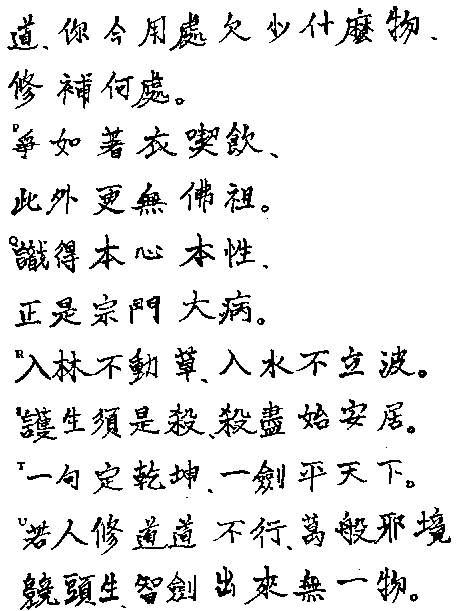 道、你今用處欠少什麼物、
修補何處。
P爭如著衣喫飲、
此外更無佛祖。
Q識得本心本性、
正是宗門大病。
R入林不動草、入水不立波。
S護生須是殺、殺盡始安居。
T一句定乾坤、一劍平天下。
U若人修道道不行、萬般邪境
競頭生、智劍出來無一物。